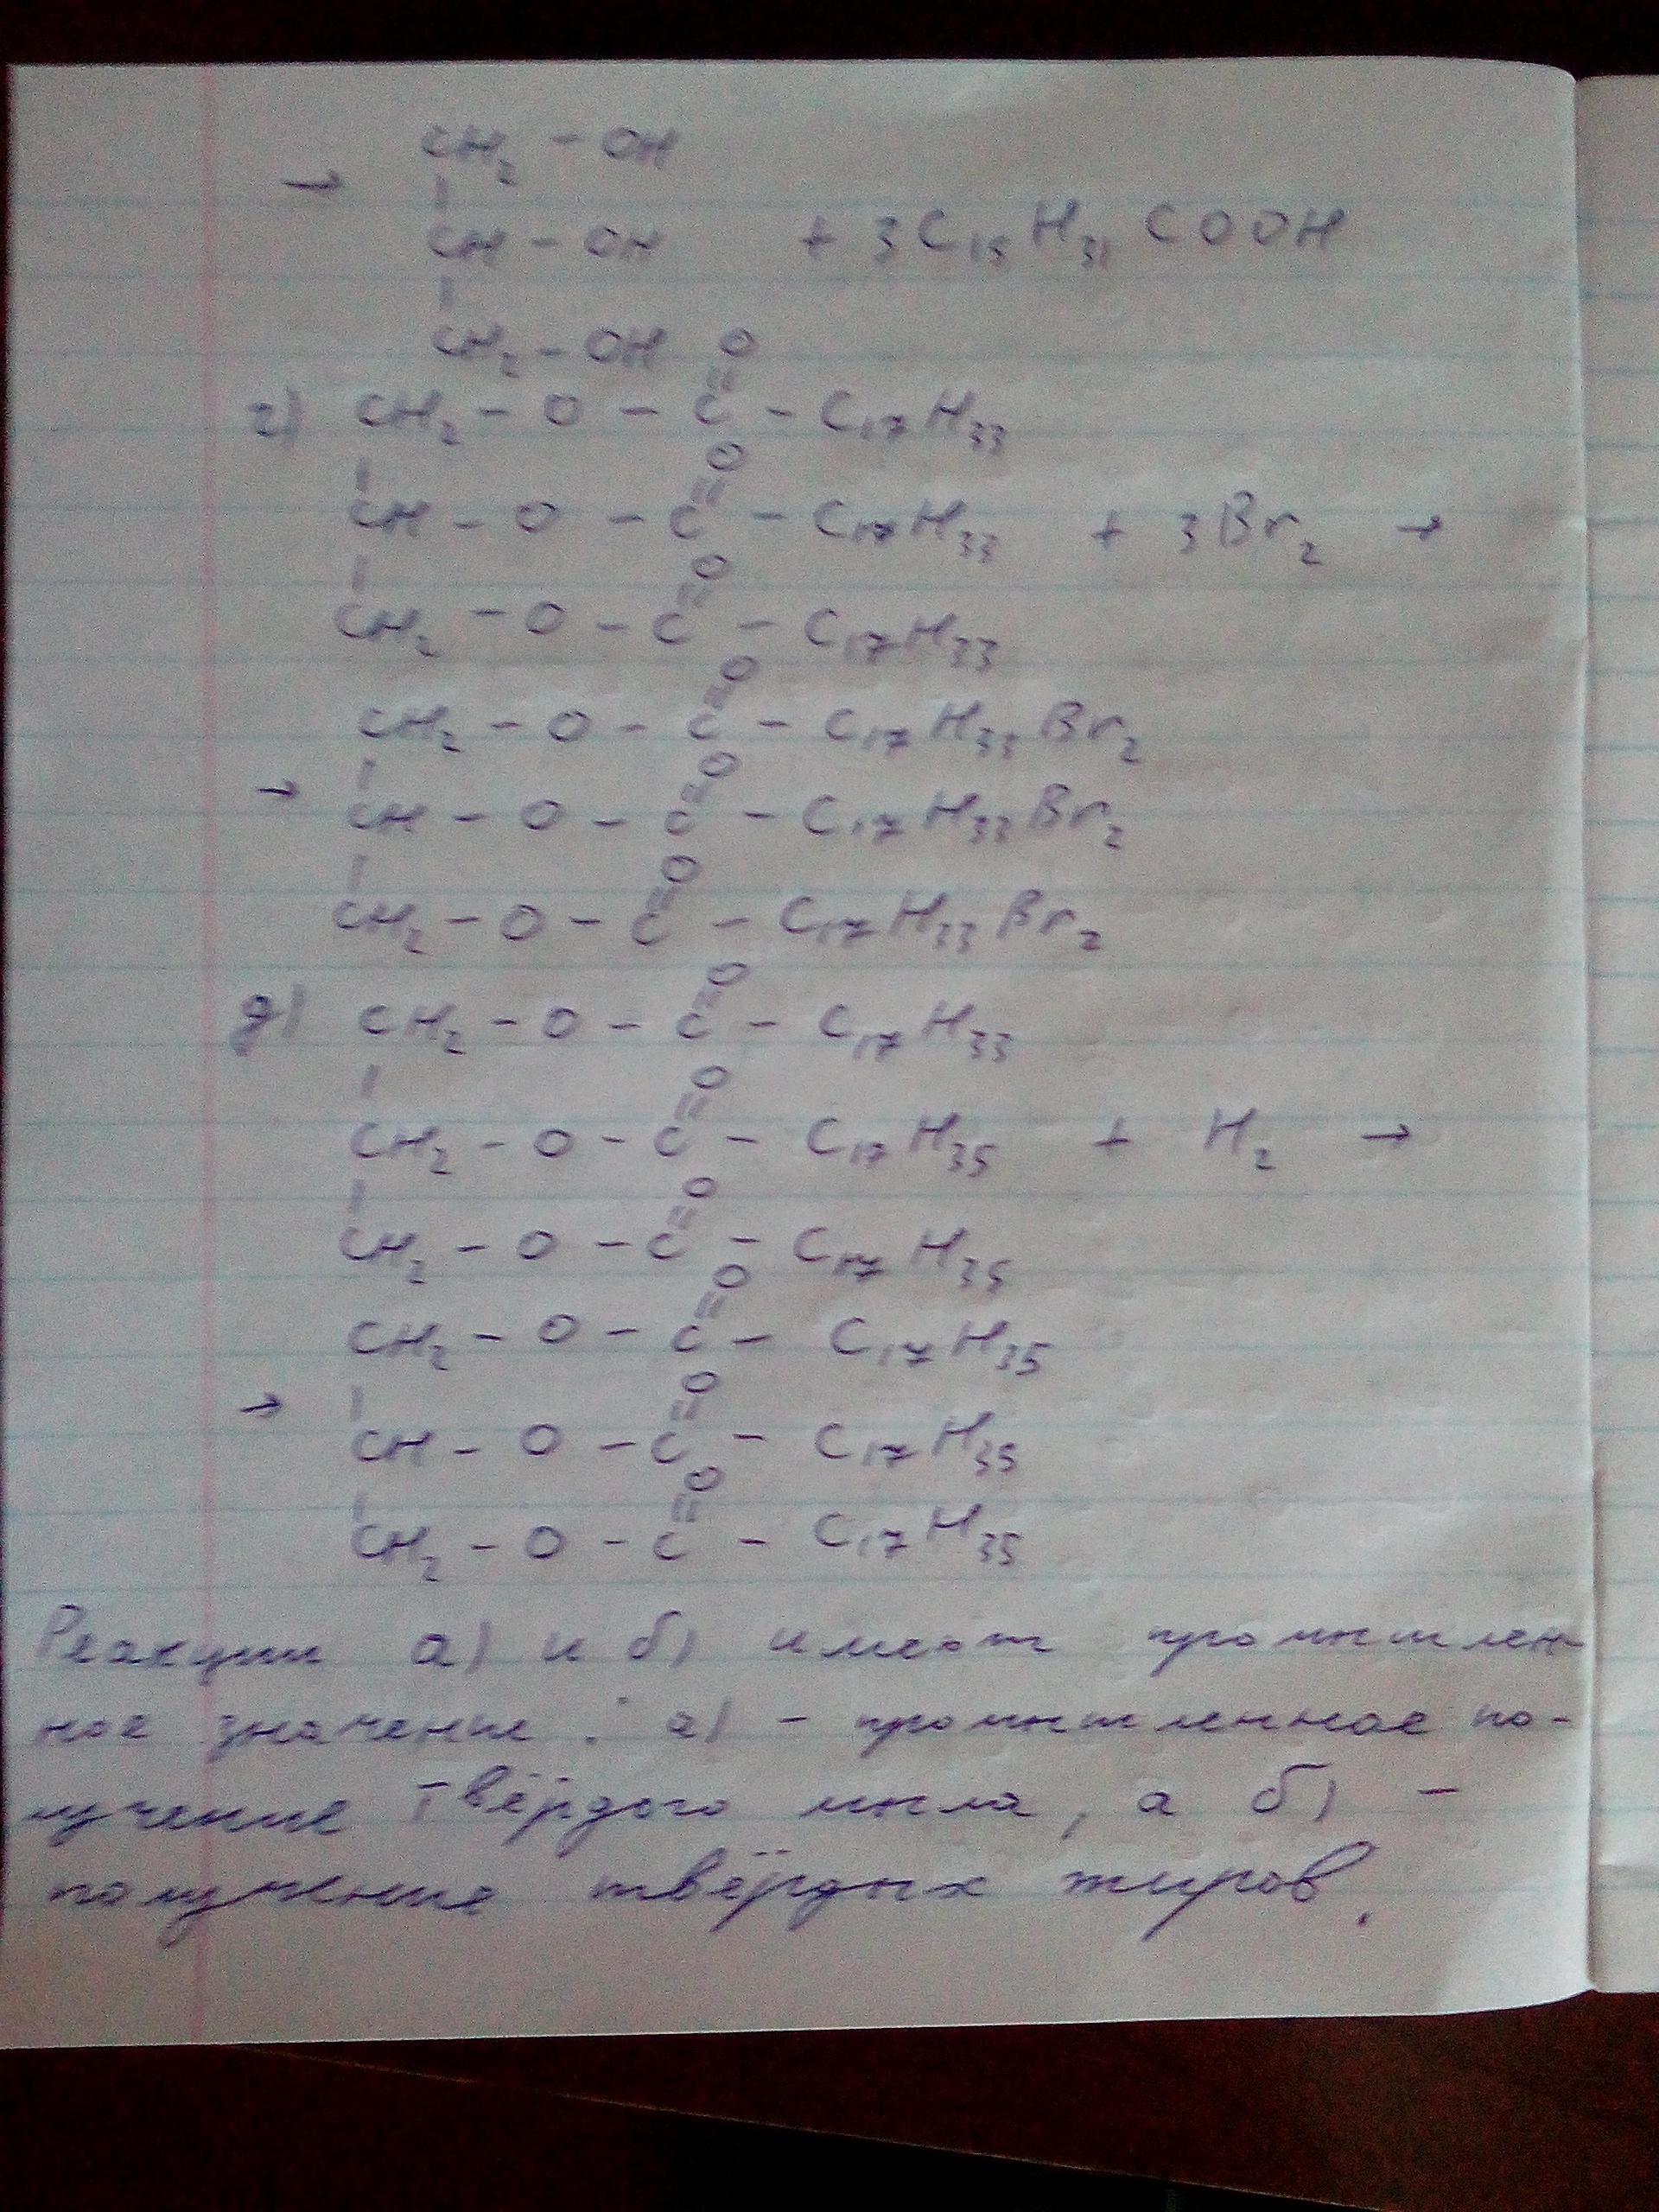 CH₂ - OH
→
CH - OH + 3C₁₅H₃₁COOH
CH₂ - OH
O
г) CH₂ - O - C - C₁₇H₃₃
O
CH - O - C - C₁₇H₃₃ + 3Br₂ →
O
CH₂ - O - C - C₁₇H₃₃
O
CH₂ - O - C - C₁₇H₃₃Br₂
O
→ CH - O - C - C₁₇H₃₃Br₂
O
CH₂ - O - C - C₁₇H₃₃Br₂
O
д) CH₂ - O - C - C₁₇H₃₃
O
CH₂ - O - C - C₁₇H₃₅ + H₂ →
O
CH₂ - O - C - C₁₇H₃₅
O
CH₂ - O - C - C₁₇H₃₅
O
→ CH - O - C - C₁₇H₃₅
O
CH₂ - O - C - C₁₇H₃₅
Реакции а) и б) имеют промышлен-
ное значение : а) - промышленное по-
лучение твёрдого мыла, а б) -
получение твёрдых жиров.